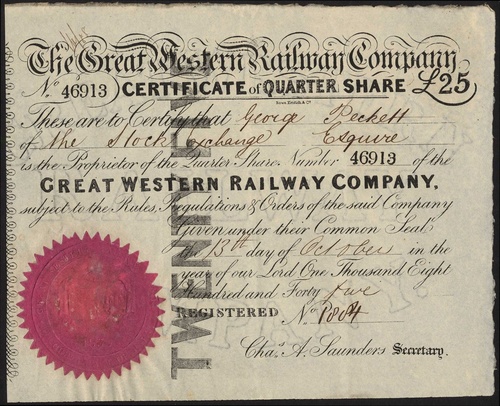 The Great Western Railway Company
No. 46913 CERTIFICATE of QUARTER SHARE £25
These are to Certify that George Beckett
of the Stock Exchange Esquire
is the Proprietor of the Quarter Share Number 46913 of the
GREAT WESTERN RAILWAY COMPANY,
subject to the Rules, Regulations & Orders of the said Company
Given under their Common Seal
the 13th day of October in the
year of our Lord One Thousand Eight
Hundred and Forty five
REGISTERED No. 1884
Chas. A. Saunders Secretary.
TWENTY FIVE